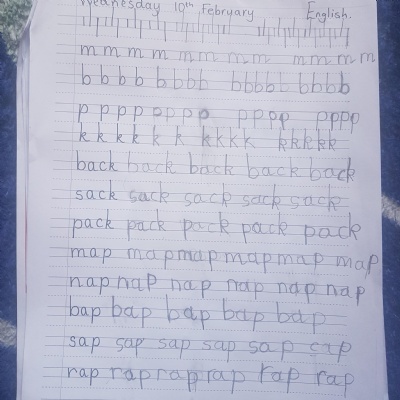 Wednesday 10th February English.
m m m m m m m m m m m m
b b b b b b b b b b b b b b b b b
p p p p p p p p p p p p p p p p
k k k k k k k k k k k k k k k
back back back back back
sack sack sack sack sack
pack pack pack pack pack
map map map map map map
nap nap nap nap nap nap
bap bap bap bap bap
sap sap sap sap sap sap
rap rap rap rap rap rap